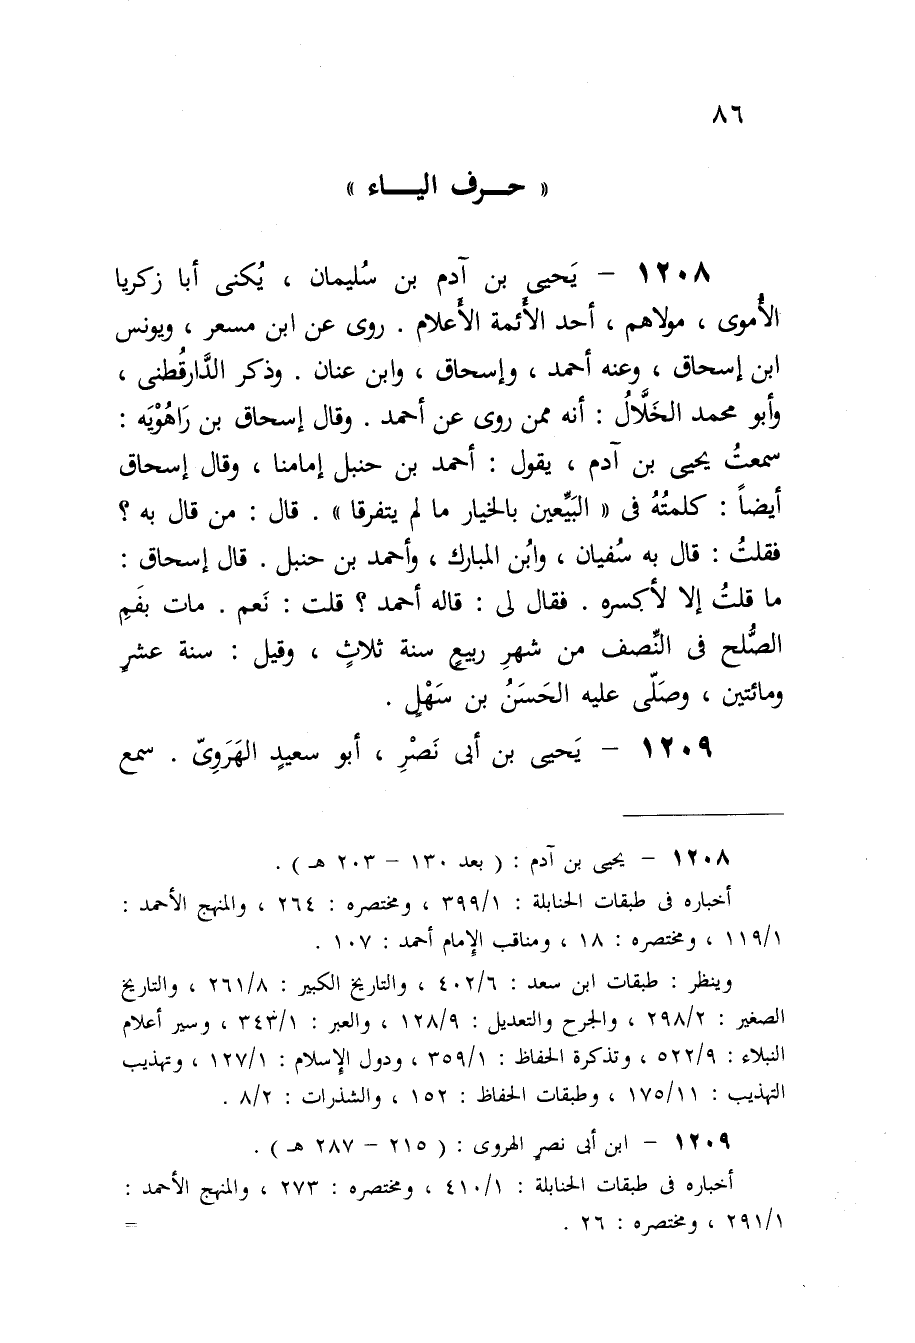 ٨٦
« حـــرف اليـــاء »
١٢٠٨ – يَحيى بن آدم بن سُليمان ، يُكنى أبا زكريا
الأُموى ، مولاهم ، أحد الأَئمة الأَعلام . روى عن ابن مسعر ، ويونس
ابن إسحاق ، وعنه أحمد ، وإسحاق ، وابن عنان . وذكر الدَّارقُطنى ،
وأبو محمد الخَلَّالُ : أنه ممن روى عن أحمد . وقال إسحاق بن رَاهُوْيَه :
سمعتُ يحيى بن آدم ، يقول : أحمد بن حنبل إمامنا ، وقال إسحاق
أيضاً : كلمتُهُ فى « البَيِّعين بالخيار ما لم يتفرقا » . قال : من قال به ؟
فقلتُ : قال به سُفيان ، وابُن المبارك ، وأحمد بن حنبل . قال إسحاق :
ما قلتُ إلا لأكسره . فقال لى : قاله أحمد ؟ قلت : نَعم . مات بفَمِ
الصُّلح فى النِّصف من شهرِ ربيعٍ سنة ثلاثٍ ، وقيل : سنة عشرٍ
ومائتين ، وصَلّى عليه الحَسَنُ بن سَهْلٍ .
١٢٠٩ – يَحيى بن أبى نَصْرِ ، أبو سعيدٍ الهَرَوِىّ . سمع
١٢٠٨ – يحيى بن آدم : ( بعد ١٣٠ – ٢٠٣ هـ ) .
أخباره فى طبقات الحنابلة : ٣٩٩/١ ، ومختصره : ٢٦٤ ، والمنهج الأحمد :
١١٩/١ ، ومختصره : ١٨ ، ومناقب الإمام أحمد : ١٠٧ .
وينظر : طبقات ابن سعد : ٤٠٢/٦ ، والتاريخ الكبير : ٢٦١/٨ ، والتاريخ
الصغير : ٢٩٨/٢ ، والجرح والتعديل : ١٢٨/٩ ، والعبر : ٣٤٣/١ ، وسير أعلام
النبلاء : ٥٢٢/٩ ، وتذكرة الحفاظ : ٣٥٩/١ ، ودول الإسلام : ١٢٧/١ ، وتهذيب
التهذيب : ١٧٥/١١ ، وطبقات الحفاظ : ١٥٢ ، والشذرات : ٨/٢ .
١٢٠٩ – ابن أبى نصرٍ الهروى : ( ٢١٥ – ٢٨٧ هـ ) .
أخباره فى طبقات الحنابلة : ٤١٠/١ ، ومختصره : ٢٧٣ ، والمنهج الأحمد :
٢٩١/١ ، ومختصره : ٢٦ . =